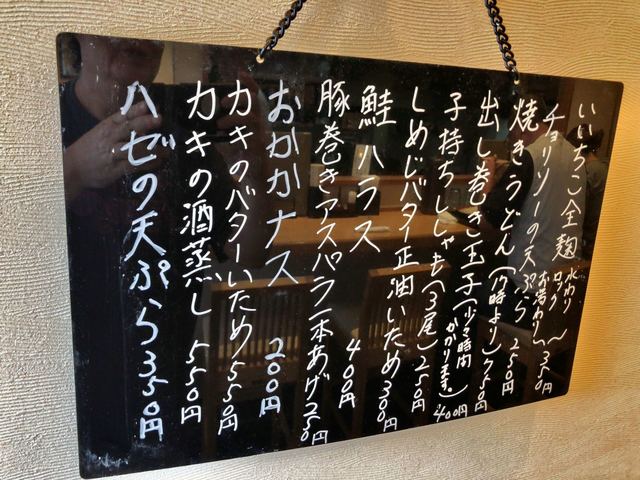 いいちこ全麹 水わり ロック お湯わり 〜350円
チョリソーの天ぷら 250円
焼きうどん(17時より)750円
出し巻き玉子(少々時間かかります。)400円
子持ちししゃも(3尾)250円
しめじバター正油いため 300円
鮭ハラス 400円
豚巻きアスパラ一本あげ250円
おかかナス 200円
カキのバターいため 550円
カキの酒蒸し 550円
ハゼの天ぷら350円